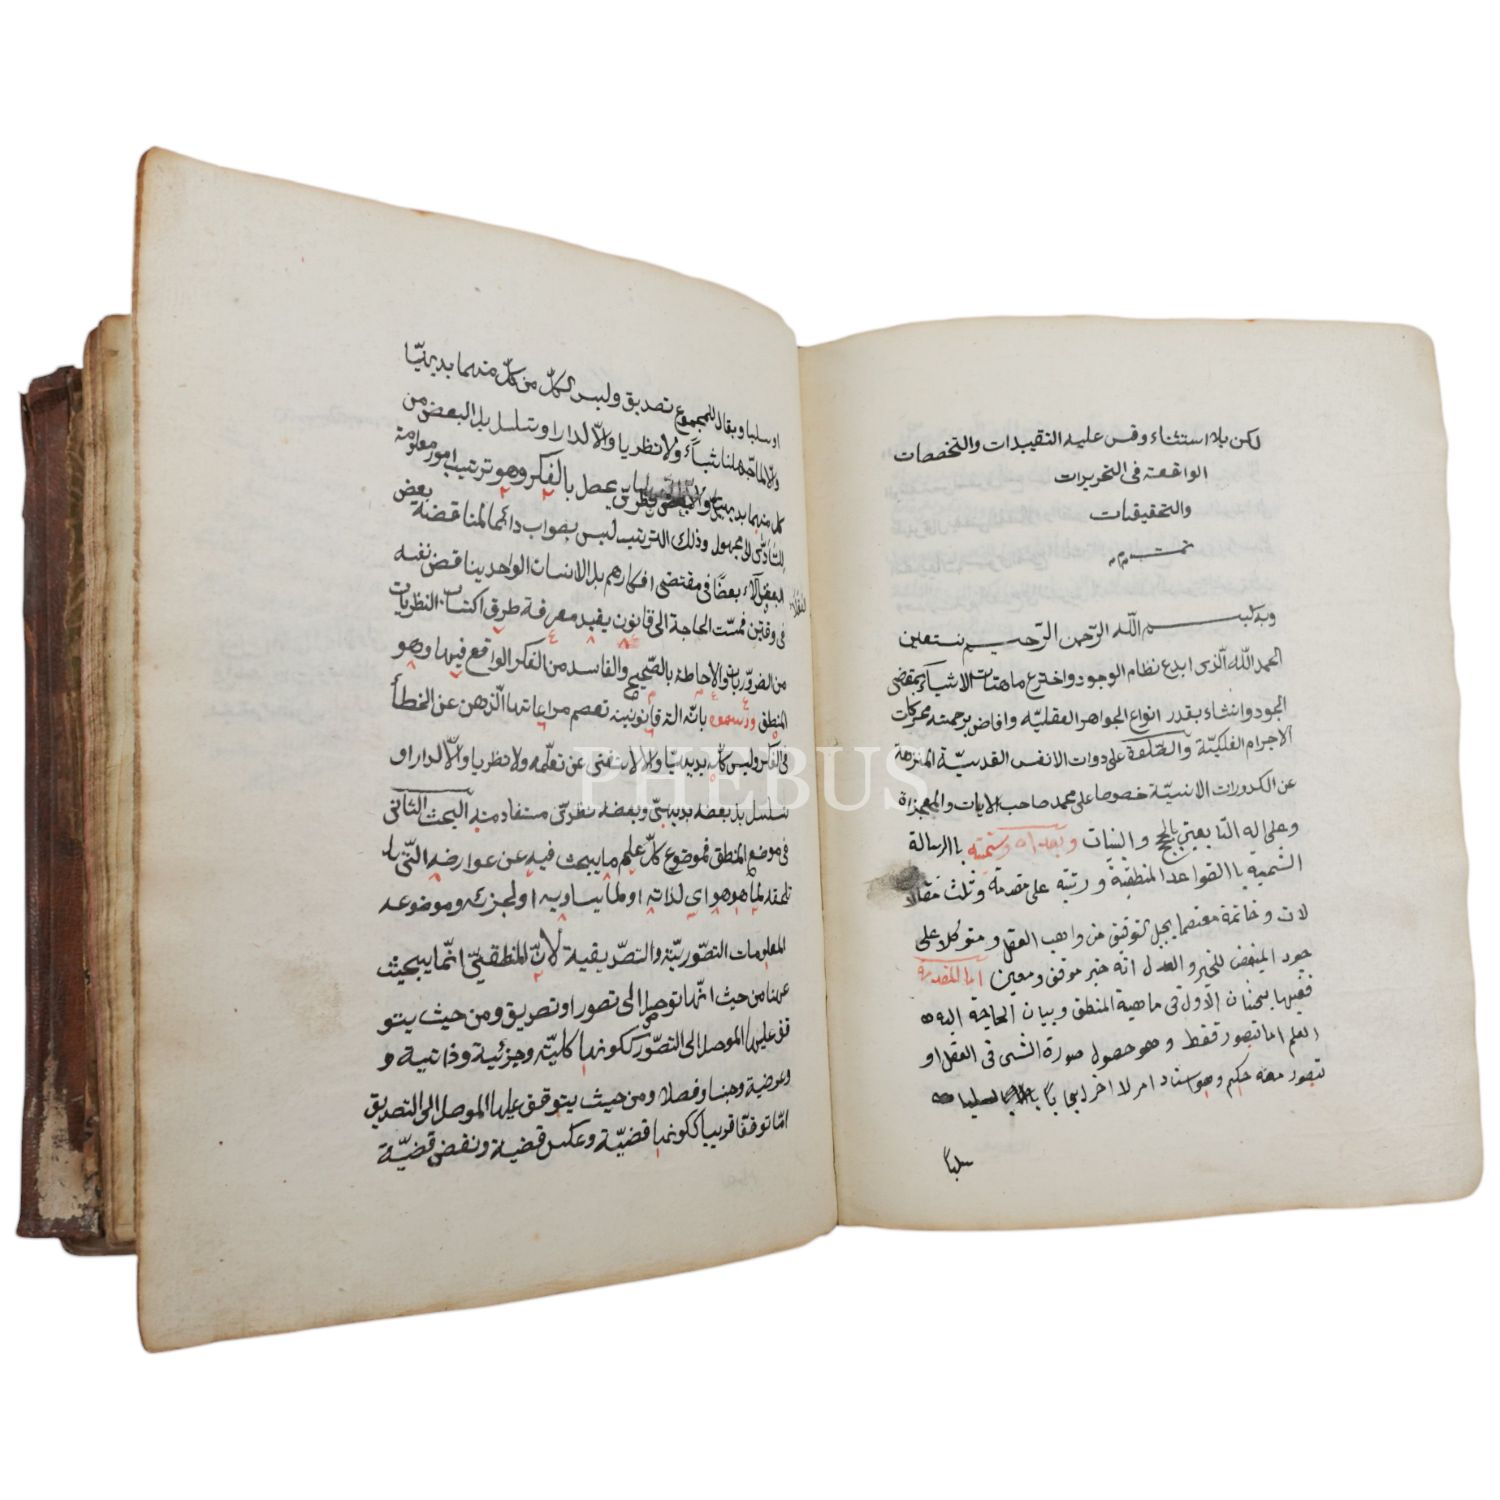 لكن بلا استثناء وقس عليه التقييدات والتخصصات
الواقعة فى التحريرات
والتحقيقات
تمت م م
وبه بسم اللّه الرّحمن الرّحيم نستعين
الحمد اللّه الّذى ابدع نظام الوجود واخترع ماهيّات الاشياء بمقتضى
الجود وانشاء بقدر انواع الجواهر العقليّه وافاض برحمته محركات
الاجرام الفلكيّة والصّلوة على ذوات الانفس القدسيّة المنزهة
عن الكدورات الانسيّة خصوصا على محمد صاحب الايات والمعجزاة
وعلى اله التابعين بالحجج والبينات وبعد وسمّيته باالرسالة
الشمية باالقواعد المنطقية ورتبته على مقدمة وثلث مقالا
لات وخاتمة معتصما بحبل التوفيق من واهب العقل ومتوكلا على
جود المفيض للخير والعدل انّه خير موفق ومعين اما المقدمة
ففيها بحثان الاول فى ماهية المنطق وبيان الحاجة اليه
العلم اما تصور فقط وهو حصول صورة الشئ فى العقل او
تصور معه حكم وهو اسناد امر لا اخر ايجابًا
سلبًا
او سلبا ويقال للمجموع تصديق وليس الكلّ من كلّ منهما بديهيّا
والّا لما جهلنا شيأً ولا نظريا والّا لدار او تسلسل بل البعض من
كل منهما بديهيّ والبعض نظرىّ يحصل بالفكر وهو ترتيب امور معلومة
للتأدّى الى مجهول وذلك الترتيب ليس بصواب دائما لمناقضة بعض
العقلاء بعضًا فى مقتضى افكارهم بل الانسان الواحد يناقض نفسه
فى وقتين فمسّت الحاجة الى قانون يفيد معرفة طرق اكتساب النظريات
من الضروريات والاحاطة بالصّحيح والفاسد من الفكر الواقع فيها وهو
المنطق ورسموه بانّه الة قانونية تعصم مراعاتها الّذهن عن الخطأ
فى الفكر وليس كلّه بديهيّا والا لاستغنى عن تعلّمه ولا نظريا والّا لدار او
تسلسل بل بعضه بديهىّ وبعضه نظرىّ مستفاد منه البحث الثانى
فى موضع المنطق فموضوع كلّ علم ما يبحث فيه عن عوارضه الّتى يلـ
تلحقه لما هو هو اى لذاته او لما يساويه او لجزئه وموضوعه
المعلومات التصّوريّة والتصّديقية لانّ المنطقىّ انّما يبحث
عنها من حيث انّها توصل الى تصور او تصديق ومن حيث يتو
قف عليها الموصل الى التصّور ككونها كليّة وجزئية وذاتية و
وعرضية وجنسا وفصلا ومن حيث يتوقف عليها الموصل الى التصديق
امّا توقفا قريبا ككونها قضيّة وعكس قضية ونقض قضيّة
PHEBUS